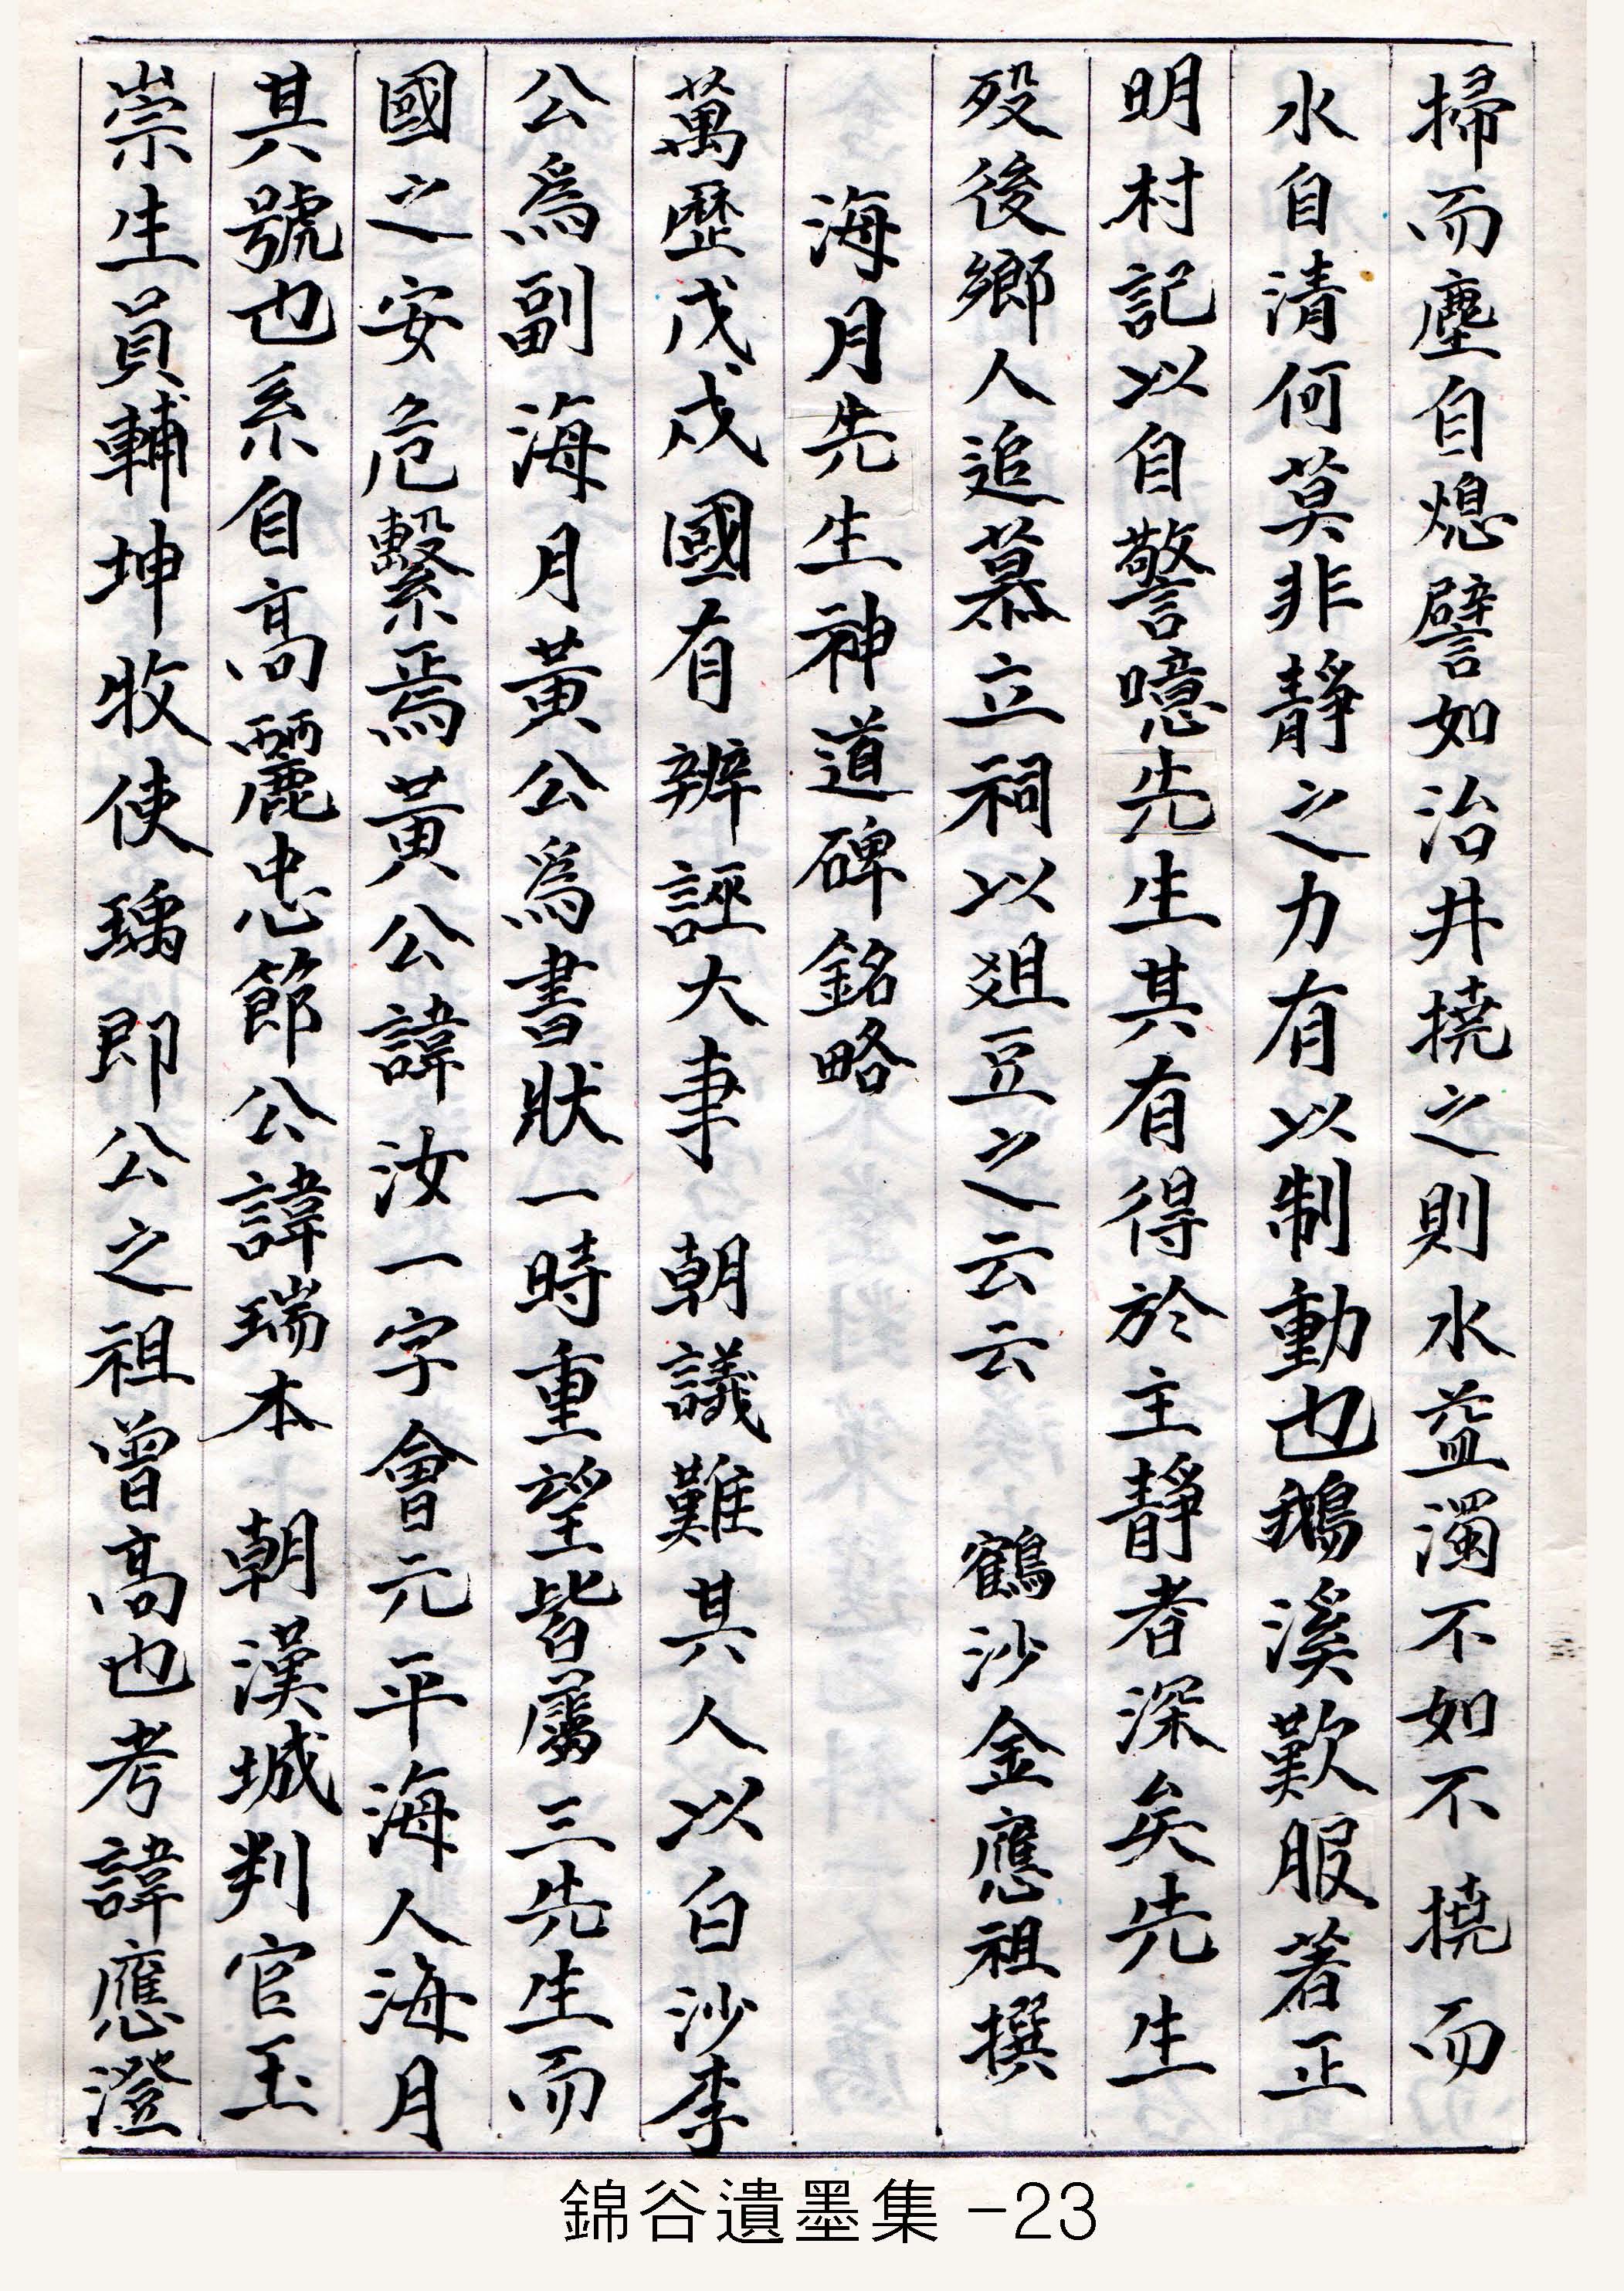 掃而塵自熄譬如治井撓之則水益濁不如不撓而
水自清何莫非靜之力有以制動也鵝溪歎服著正
明村記以自警噫先生其有得於主靜者深矣先生
歿後鄉人追慕立祠以爼豆之云云 鶴沙金應祖撰
海月先生神道碑銘略
萬歷戊戌國有辨誣大事 朝議難其人以白沙李
公爲副海月黃公爲書狀一時重望皆屬三先生而
國之安危繫焉黃公諱汝一字會元平海人海月
其號也系自高麗忠節公諱瑞本 朝漢城判官玉
崇生員輔坤牧使瑀卽公之祖曾高也考諱應澄
錦谷遺墨集 -23